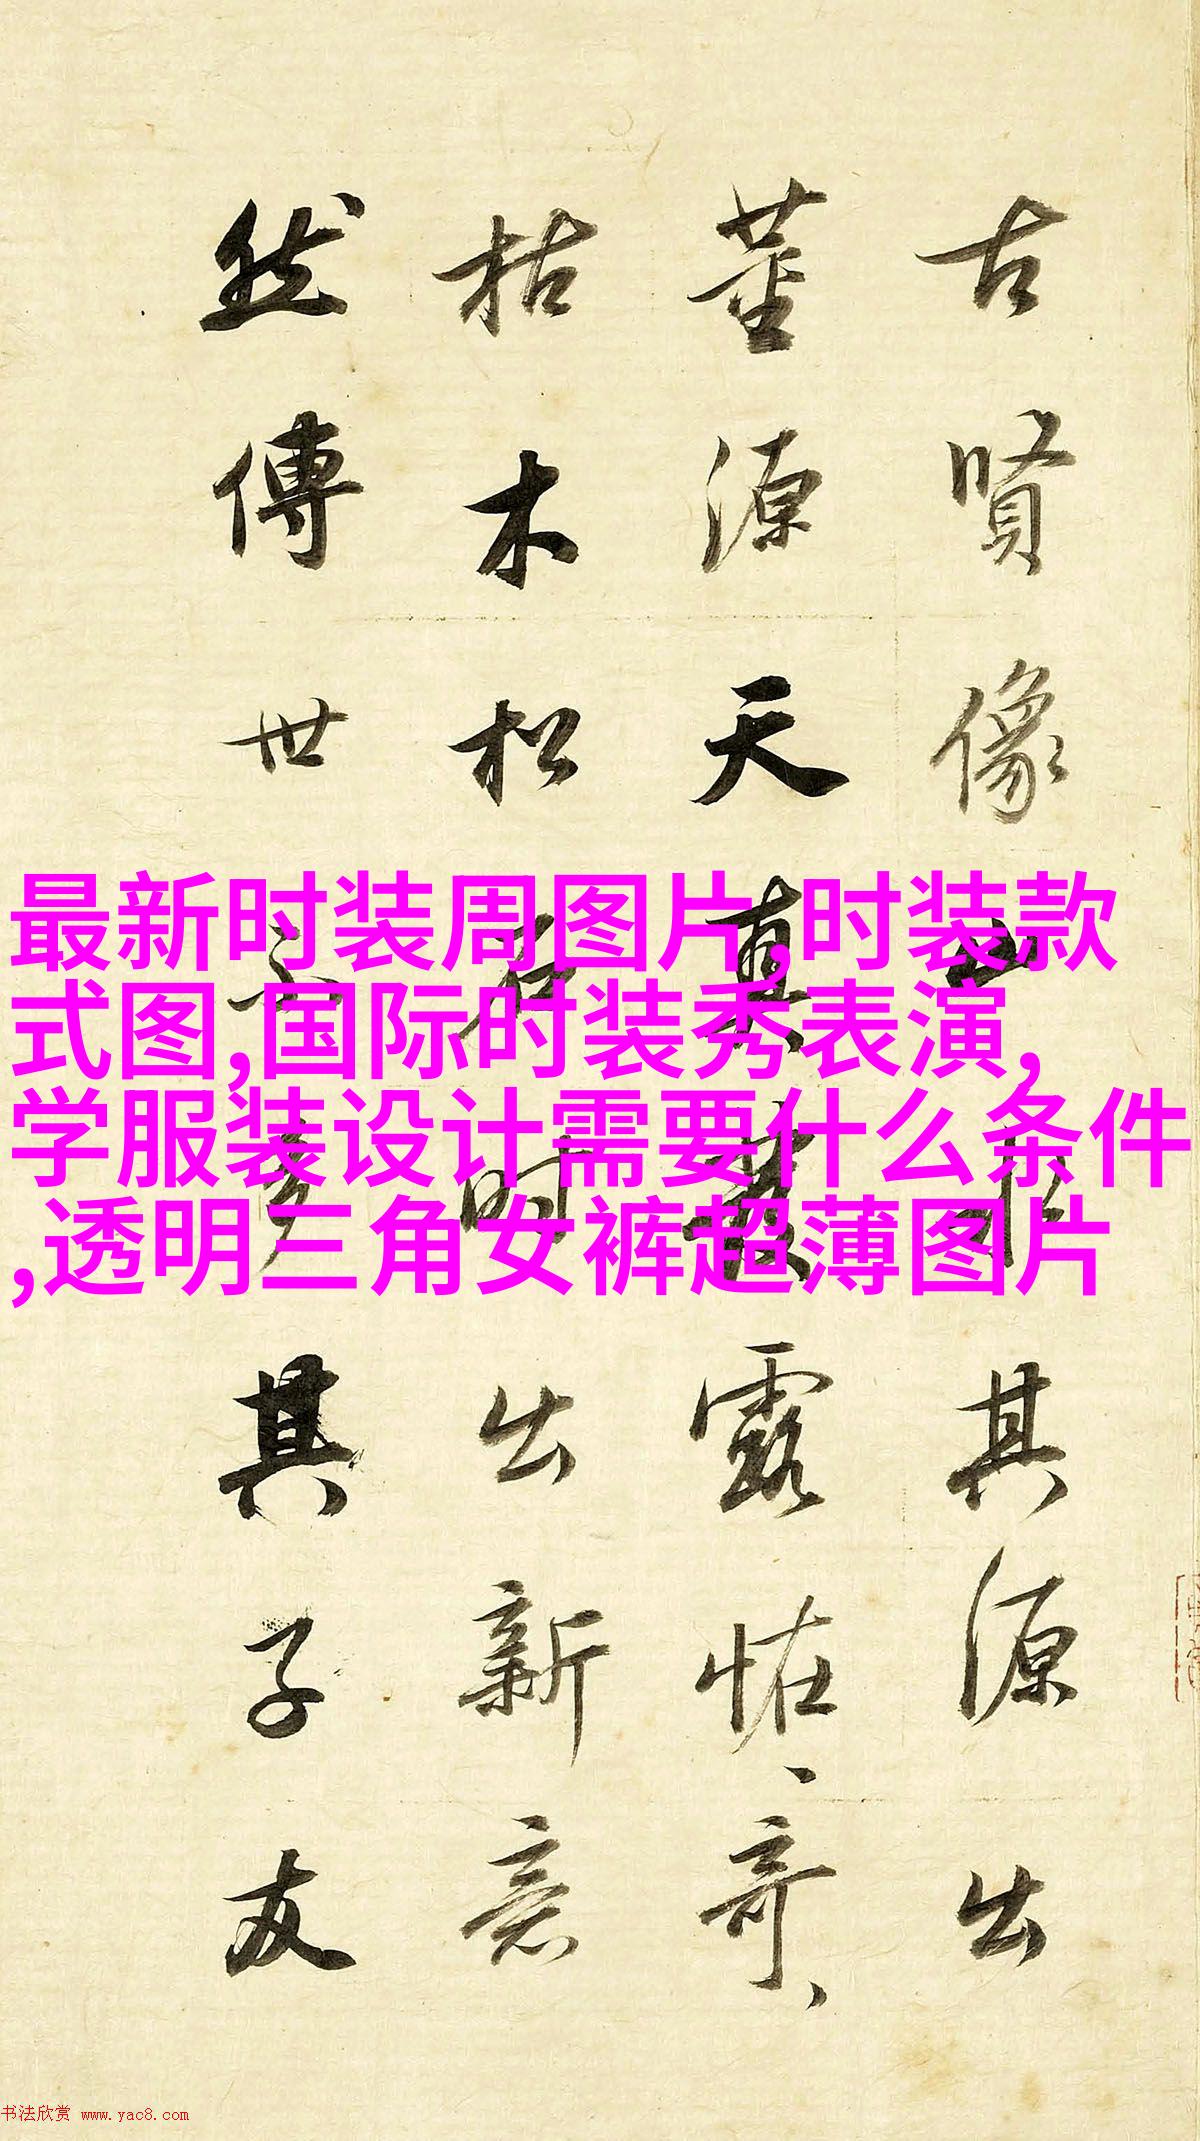 古賢像其源出
董源天真發露恠奇
枯木松石時出新意
然傳世不多其子友
最新时装周图片,时装款
式图,国际时装秀表演,
学服装设计需要什么条件
,透明三角女裤超薄图片
书法欣赏 www.yac8.com